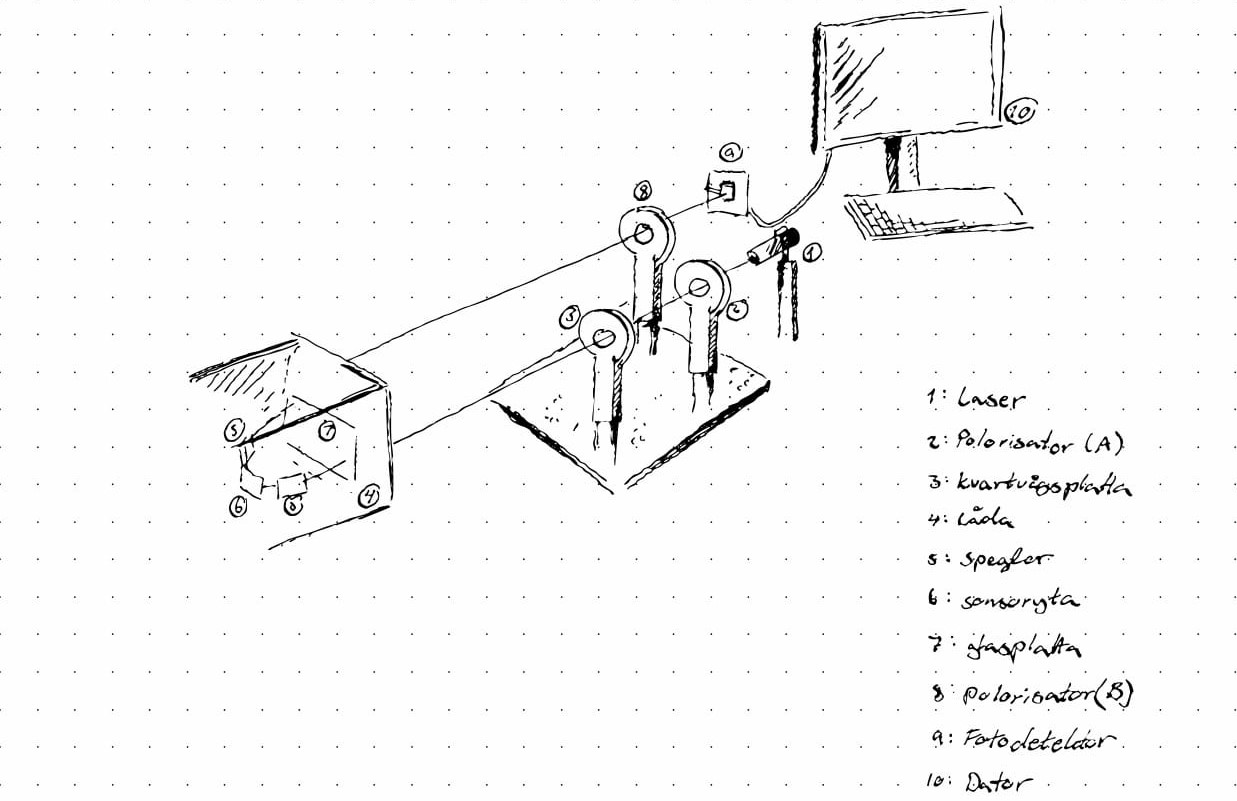 10
9
8
1
2
3
5
7
6
5
4
1: Laser
2: Polarisator (A)
3: Kvartvågsplatta
4: Låda
5: Speglar
6: sensoryta
7: glasplatta
8: Polarisator (B)
9: Fotodetektor
10: Dator